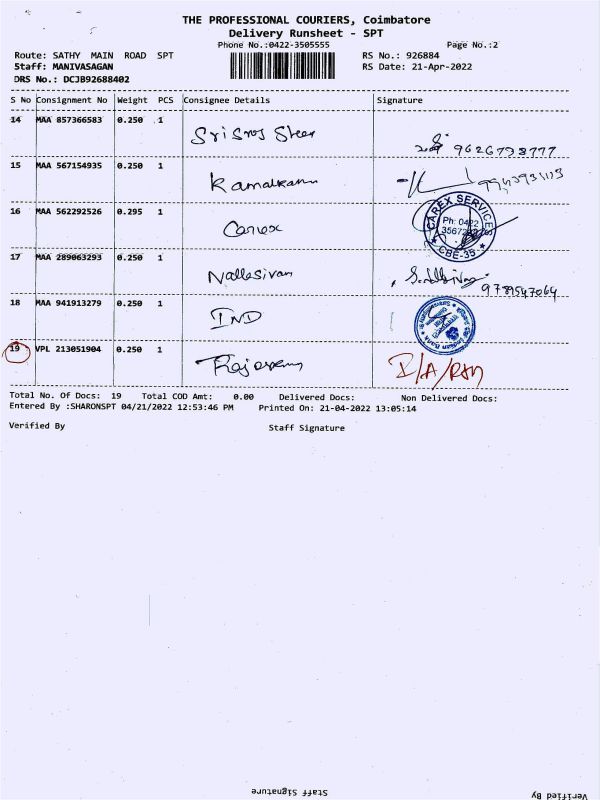 THE PROFESSIONAL COURIERS, Coimbatore
Delivery Runsheet - SPT
Phone No.:0422-3505555 Page No.:2
Route: SATHY MAIN ROAD SPT RS No.: 926884
Staff: MANIVASAGAN RS Date: 21-Apr-2022
DRS No.: DCJB92688402
S No Consignment No Weight PCS Consignee Details Signature
14 MAA 857366583 0.250 1
15 MAA 567154935 0.250 1 Kamalkannn
16 MAA 562292526 0.295 1 Carex
CAREX SERVICES
Ph: 0422
CBE-35
17 MAA 289063293 0.250 1 Nallesivan
9789547064
18 MAA 941913279 0.250 1 IND
19 VPL 213051904 0.250 1
Total No. Of Docs: 19 Total COD Amt: 0.00 Delivered Docs: Non Delivered Docs:
Entered By :SHARONSPT 04/21/2022 12:53:46 PM Printed On: 21-04-2022 13:05:14
Verified By Staff Signature
Staff Signature Verified By